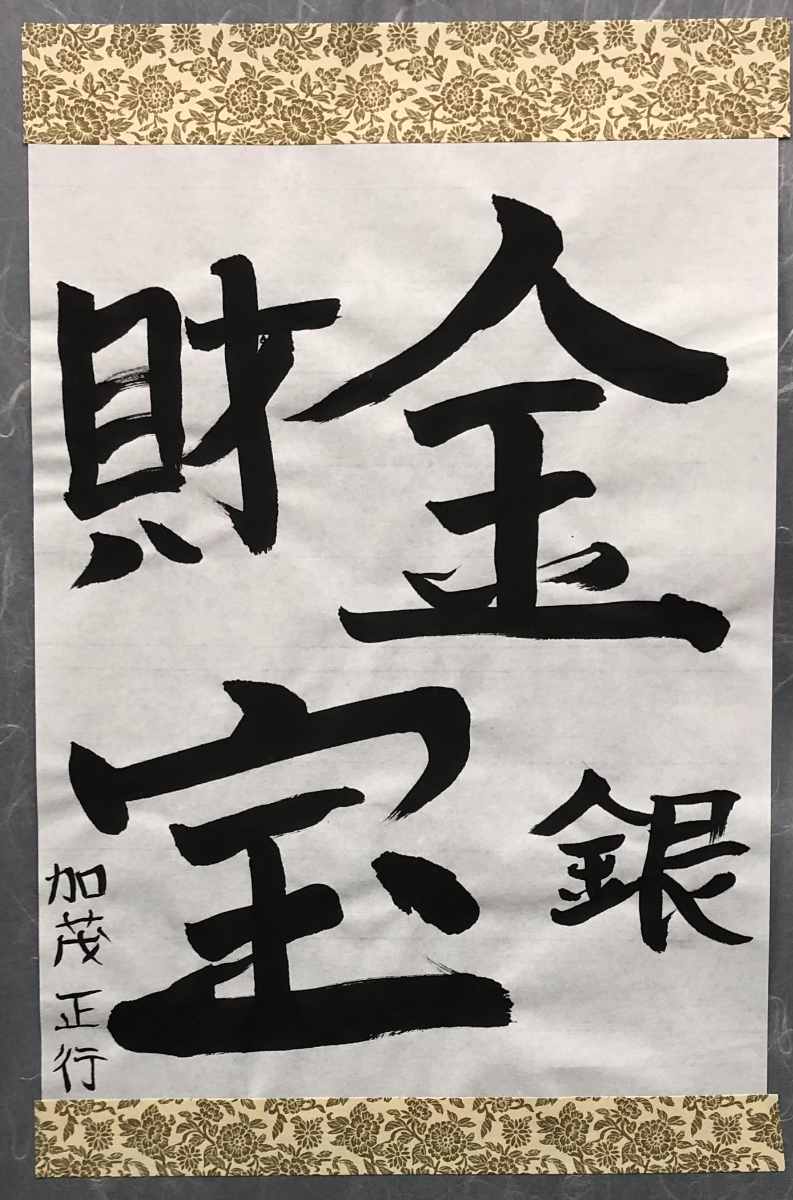 金銀
財宝
加茂正行